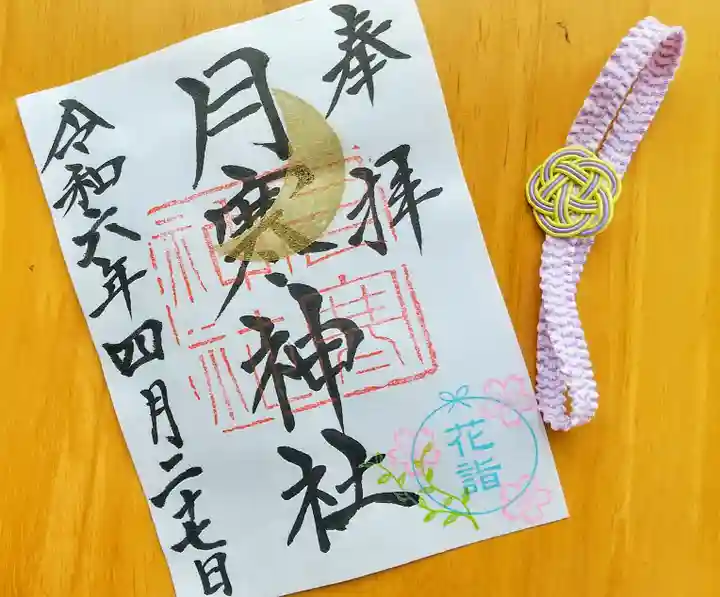 奉拝
月寒神社
令和六年四月二十七日
花詣